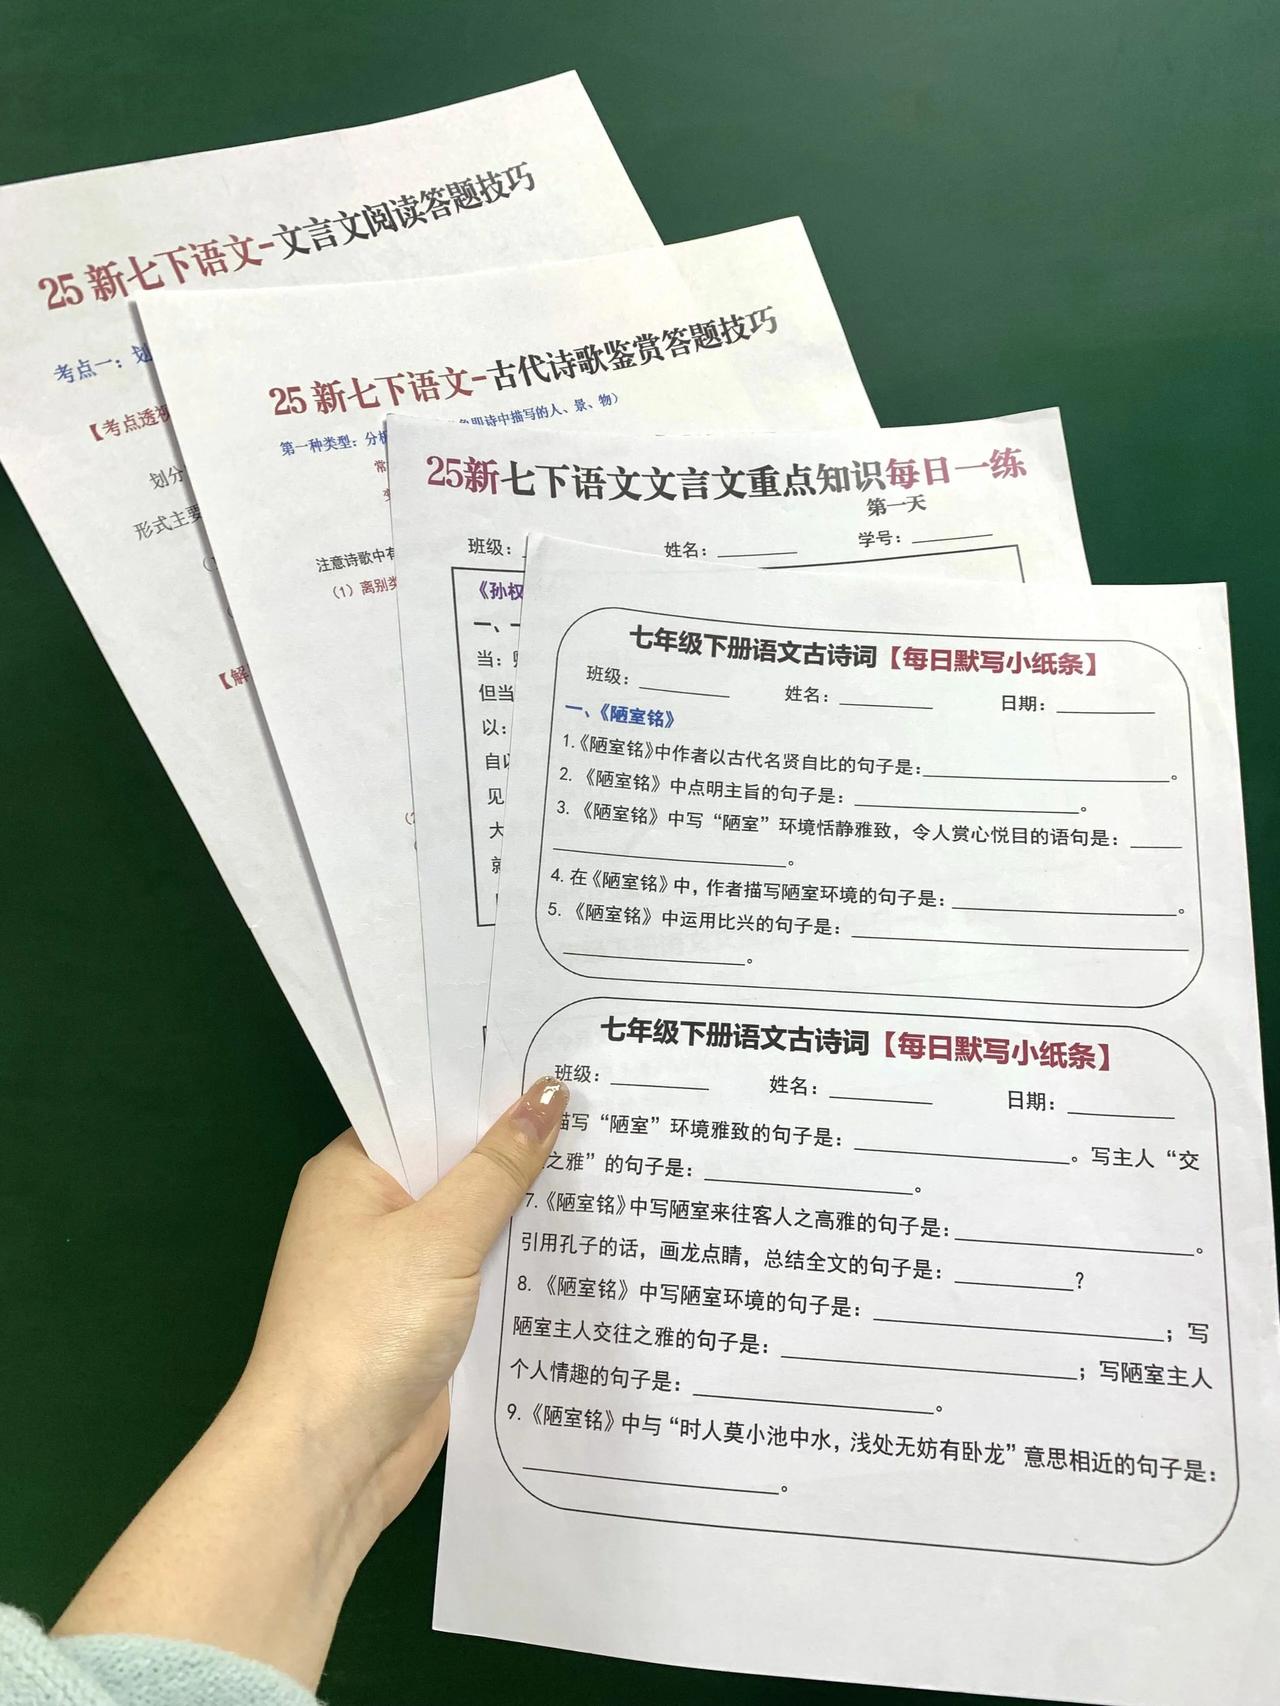 25新七下语文-文言文阅读答题技巧
考点一：划
【考点透视
划分
形式主要
【解
25新七下语文-古代诗歌鉴赏答题技巧
第一种类型：分析
即诗中描写的人、景、物）
常
注意诗歌中有
（1）离别类
25新七下语文文言文重点知识每日一练
第一天
班级：
姓名：
学号：
《孙权
一、一
当：
但当
以：
自以
见
大
就
七年级下册语文古诗词【每日默写小纸条】
班级： 姓名： 日期：
一、《陋室铭》
1.《陋室铭》中作者以古代名贤自比的句子是：。
2. 《陋室铭》中点明主旨的句子是：。
3. 《陋室铭》中写“陋室”环境恬静雅致，令人赏心悦目的语句是：
。
4. 在《陋室铭》中，作者描写陋室环境的句子是：。
5. 《陋室铭》中运用比兴的句子是：
。
七年级下册语文古诗词【每日默写小纸条】
班级： 姓名： 日期：
描写“陋室”环境雅致的句子是：。写主人“交
之雅”的句子是：。
7.《陋室铭》中写陋室来往客人之高雅的句子是：。
引用孔子的话，画龙点睛，总结全文的句子是：？
8. 《陋室铭》中写陋室环境的句子是：；写
陋室主人交往之雅的句子是：；写陋室主人
个人情趣的句子是：。
9.《陋室铭》中与“时人莫小池中水，浅处无妨有卧龙”意思相近的句子是：
。